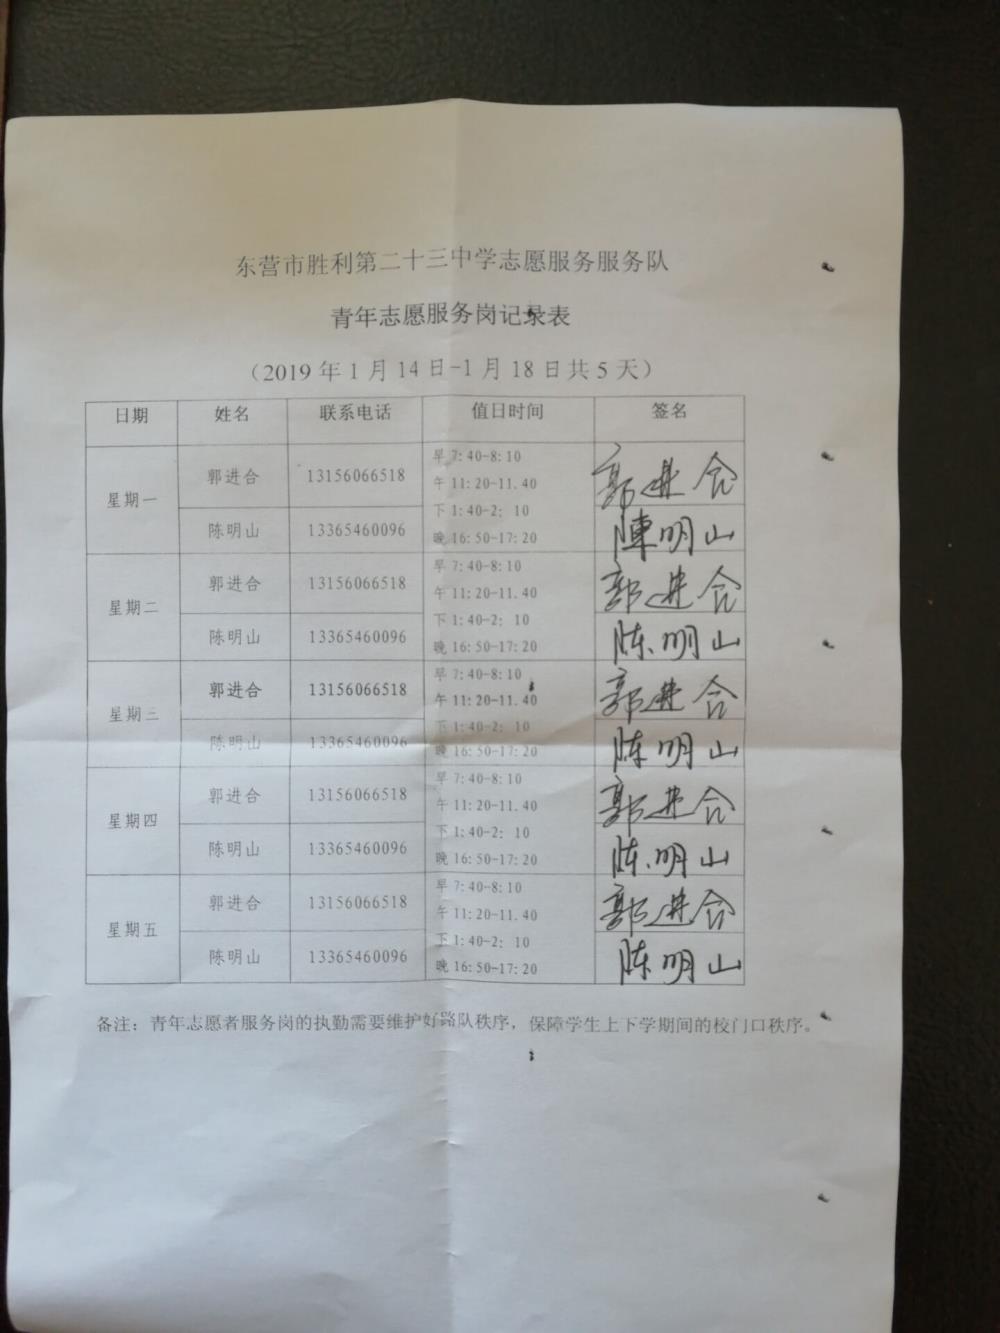 东营市胜利第二十三中学志愿服务服务队
青年志愿服务岗记录表
（2019 年 1 月 14 日-1 月 18 日共 5 天）
日期 姓名 联系电话 值日时间 签名
星期一 郭进合 13156066518 早 7:40-8:10 郭进合
午 11:20-11.40
陈明山 13365460096 下 1:40-2：10 陳明山
晚 16:50-17:20
星期二 郭进合 13156066518 早 7:40-8:10 郭进合
午 11:20-11.40
陈明山 13365460096 下 1:40-2：10 陈明山
晚 16:50-17:20
星期三 郭进合 13156066518 早 7:40-8:10 郭进合
午 11:20-11.40
陈明山 13365460096 下 1:40-2：10 陈明山
晚 16:50-17:20
星期四 郭进合 13156066518 早 7:40-8:10 郭进合
午 11:20-11.40
陈明山 13365460096 下 1:40-2：10 陈明山
晚 16:50-17:20
星期五 郭进合 13156066518 早 7:40-8:10 郭进合
午 11:20-11.40
陈明山 13365460096 下 1:40-2：10 陈明山
晚 16:50-17:20
备注：青年志愿者服务岗的执勤需要维护好路队秩序，保障学生上下学期间的校门口秩序。